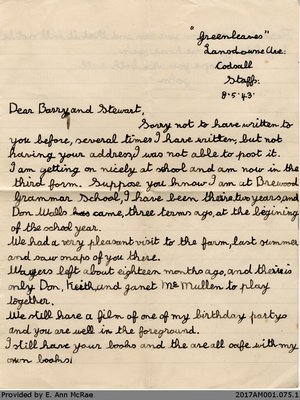 "Greenleaves"
Lansdowne Ave:
Codsall
Staffs.
8.5.43.
Dear Barry and Stewart,
Sorry not to have written to
you before, several times I have written, but not
having your address, I was not able to post it.
I am getting on nicely at school and am now in the
third form. Suppose you know I am at Brewood
Grammar School, I have been there two years, and
Don Walls has came, three terms ago, at the begining
of the school year.
We had a very pleasant visit to the farm, last summer
and saw snaps of you there.
left about eighteen months ago, and there is
only Don, Keith, and Janet McMullen to play
together.
We still have a film of one of my birthday partys
and you are well in the foreground.
I still have your books and the are all safe with my
own books.
Provided by E. Ann McRae
2017AM001.075.1